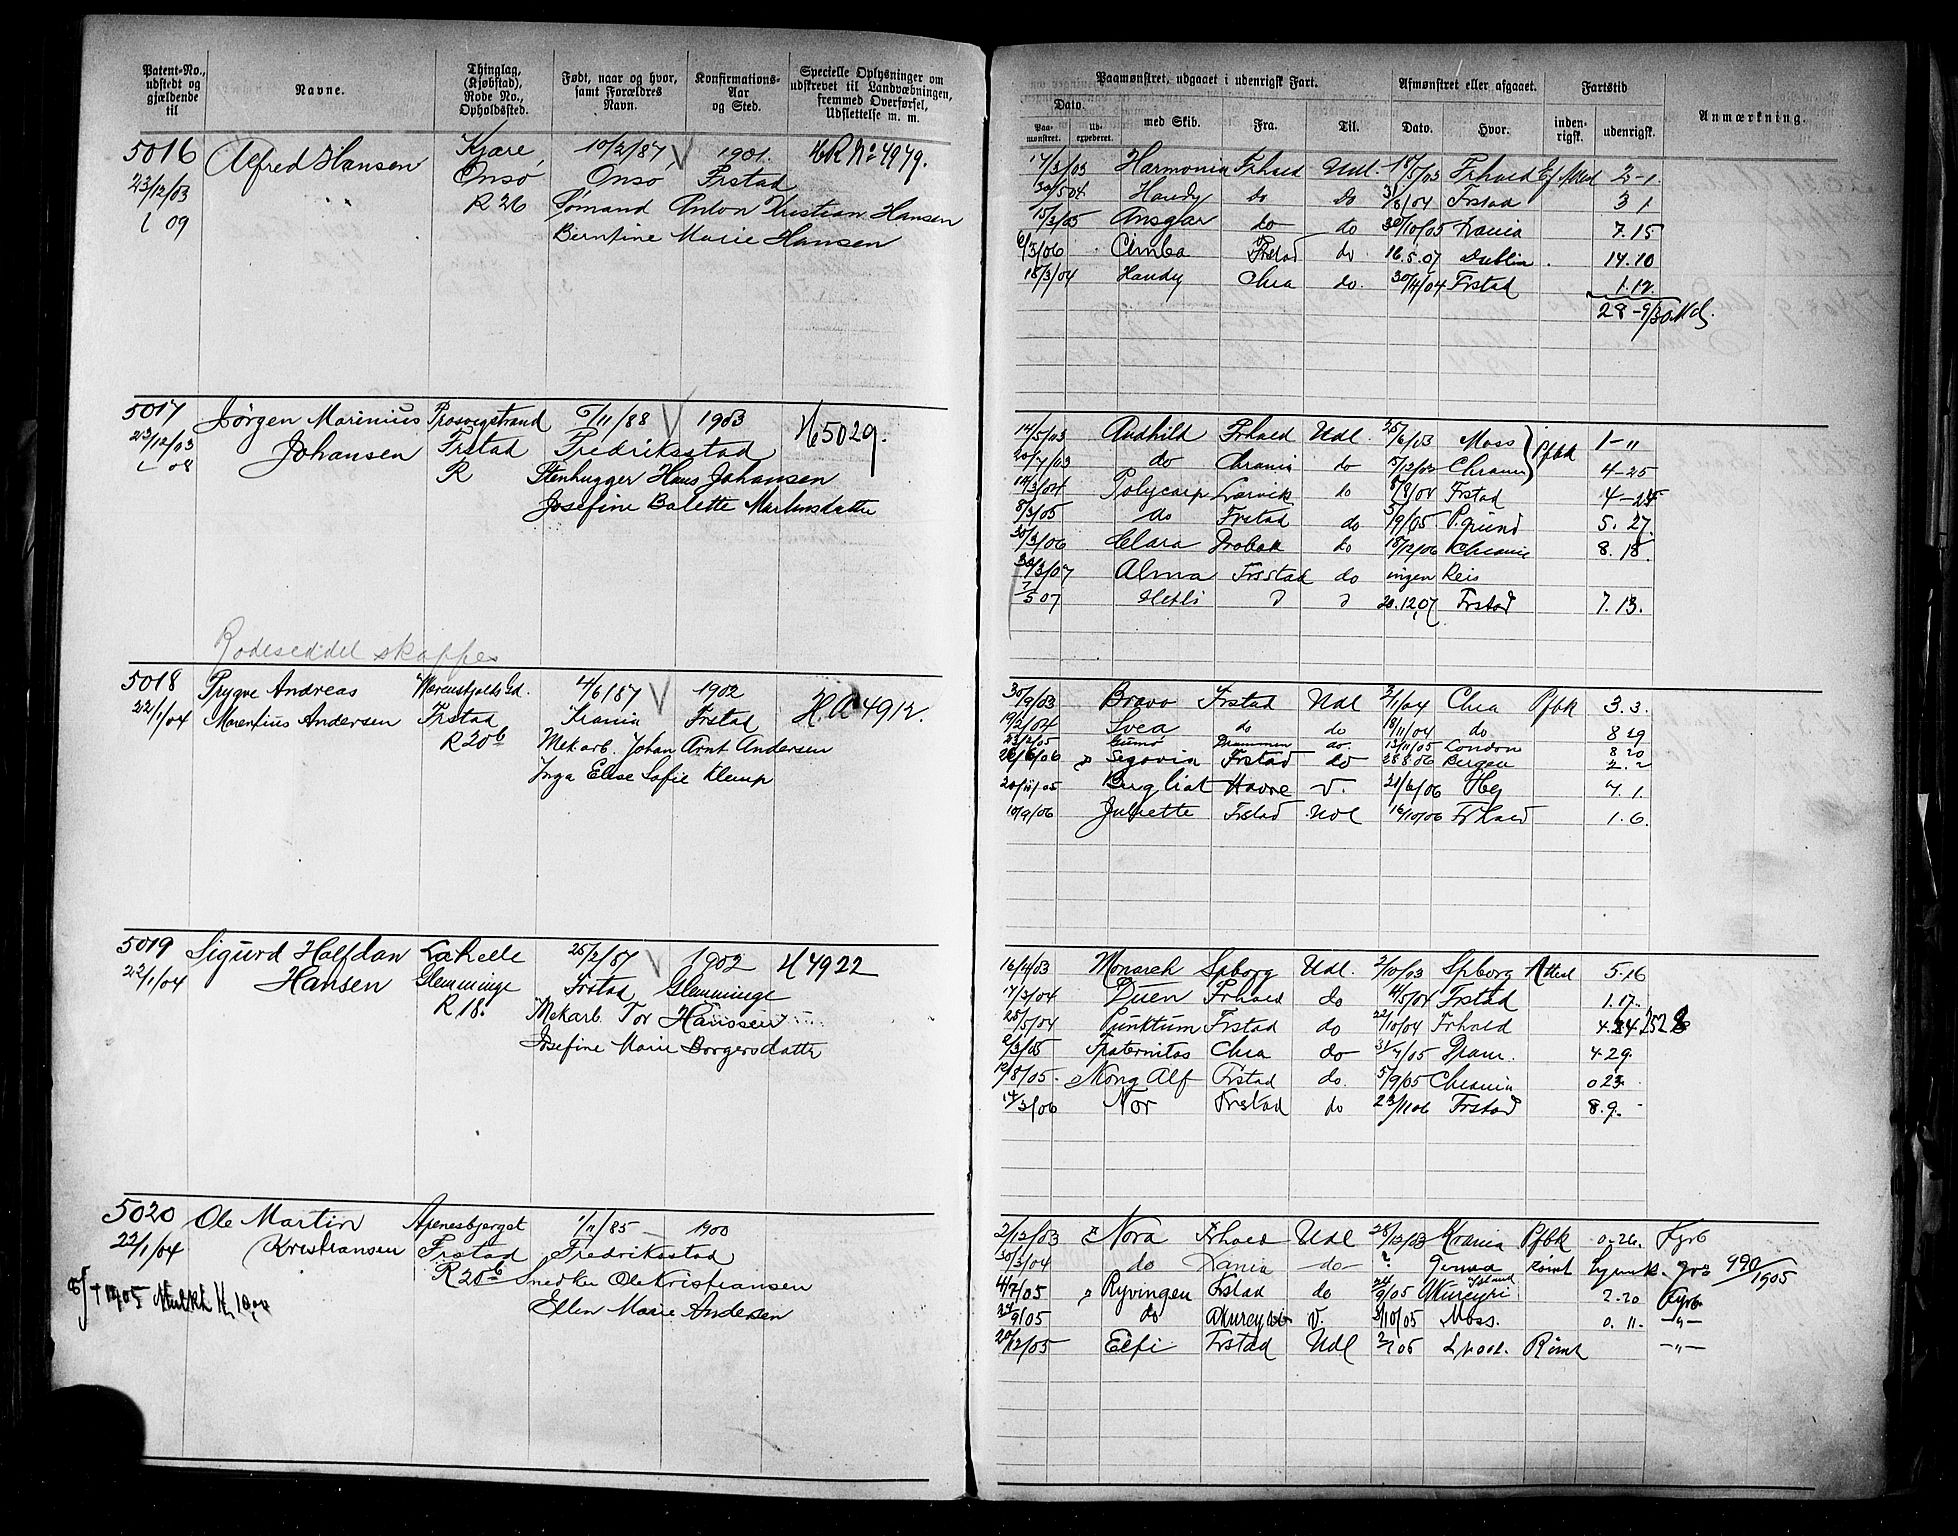 Patent-No., udstedt og gjældende til
Navne.
Thinglag, (Kjøbstad), Rode No., Opholdssted.
Født, naar og hvor, samt Forældres Navn.
Konfirmations-Aar og Sted.
Specielle Oplysninger om udskrevet til Landvæbningen, fremmed Overførsel, Udslettelse m. m.
5016 Alfred Hansen Kjære, 10/2/87 1901. No 4979.
23/12/03 Onsø Onsø Frstad
09 R 26 Sømand Anton Kristian Hansen
Berntine Marie Hansen
5017 Jørgen Marinius 6/11/88 1903 5029.
23/12/03 Johansen Frstad Fredriksstad
08 R Stenhugger Hans Johansen
Josefine Balette Martinsdatter
Rodeseddel skaffes
5018 Trygve Andreas 4/6/87 1902 H.A 4912.
22/1/04 Marentius Andersen Frstad Krania Frstad
R 20b Mek arb. Johan Arnt Andersen
Inga Elise Sofie Klemp
5019 Sigurd Halfdan Lækelle 25/2/87 1902 H 4922
22/1/04 Hansen Glemminge Frstad Glemminge
R 18. Mekarb. Tor Hanssen
Josefine Marie Borgersdatter
5020 Ole Martin Apenesbjerget 1/11/85 1900
22/1/04 Kristiansen Frstad Fredriksstad
R 20b Snedker Ole Kristiansen
Ellen Marie Andersen
Paamønstret, udgaaet i udenrigsk Fart.
Afmønstret eller afgaaet.
Fartstid
Anmærkning.
Dato.
Paa-mønstret.
Ud-expederet.
med Skib.
Fra.
Til.
Dato.
Hvor.
inden-rigsk.
udenrigsk.
17/3/03 Harmonia Frhald Udl. 18/5/03 Frhald 2-1
Handy do do Frstad 3 1
15/3/05 Ansgar do do 30/10/05 Krania 7.15
6/3/06 Cimba Frstad do 16.5.07 Dublin 14.10
18/3/04 Handy Chra do. 30/4/04 Frstad 1.12.
28-9/30 Md.
14/5/03 Audhild Frhald Udl. 25/6/03 Moss Pfbk 1-"
20/7/03 do Chrania do Chrania 4-25
Polycarp Larvik do Frstad 4-25
8/3/05 do Frstad do 5/9/05 P.grund 5. 27.
30/3/06 Clara Drøbak do 18/12/06 Chrania 8. 18.
Alma Frstad do ingen Reis
7/5 07 20.12.07 Frstad 7. 13.
30/9/03 Bravo Frstad Udl 2/1/04 Chra Pfbk 3. 3.
19/2/04 Svea do do 18/11/04 do 8 29
Drammen do. 13/11/05 London 8 20
Segovia Frstad do 28 8 06 Bergen
20/11/05 Bergliot Havre v. 21/6/06 7. 1.
10/9/06 Juliette Frstad Udl 16/10/06 Frhald 1. 6.
16/4/03 Monarch Spborg Udl. 2/10/03 Spborg Attest 5.16
17/3/04 Duen Frhald do 4/5/04 Frstad 1.17.
25/5/04 Punktum Frstad do 22/10/04 Frhald
2/3/05 Fraternitas Chra do 31/7/05 Dram. 4.29.
12/8/05. Kong Alf Frstad do. 5/9/05 Chrania 0 23
14/3/06 Nor Frstad do 23/11 06 Frstad 8. 9.
2/12/03 Nora Frhald Udl 28/12/03 Krania Pfbk 0.26. Fyrb
30/3/04 do Krania do ? rømt 990/1905
4/7/05 Ryvingen Frstad do 24/9/05 Akureyri Island 2.20 Fyrb.
24/9/05 do Akureyri v. 5/10/05 Moss. 0. 11. -"-
20/12/05 Elfi Frstad Udl Rømt -"-